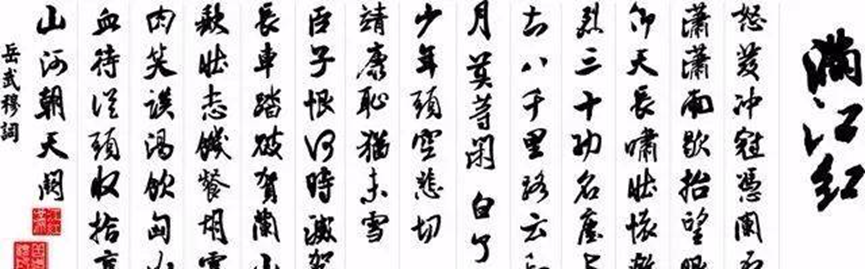 滿江红
怒發冲冠憑闌
瀟瀟雨歇抬望眼
仰天長嘯壯懷激
烈三十功名塵与
土八千里路云和
月莫等閑白了
少年頭空悲切
靖康恥猶未雪
臣子恨何時滅駕
長車踏破賀蘭山
缺壯志饑餐胡虜
肉笑談渴飲匈奴
血待從頭收拾
山河朝天闕
岳武穆詞